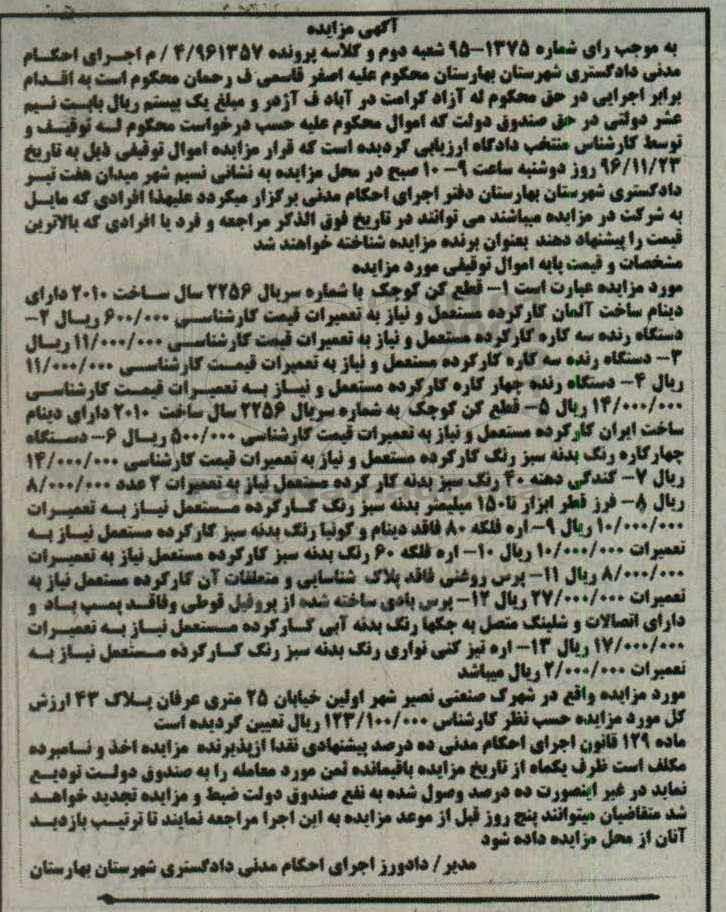 آگهی مزایده
به موجب رای شماره ۱۳۷۵-۹۵ شعبه دوم و کلاسه پرونده ۴/۹۶۱۳۵۷ / م اجرای احکام
مدنی دادگستری شهرستان بهارستان محکوم علیه اصغر قاسمی ف رحمان محکوم است به اقدام
برابر اجرایی در حق محکوم له آزاد کرامت در آباد ف آژدر و مبلغ یک بیستم ریال بابت نیم
عشر دولتی در حق صندوق دولت که اموال محکوم علیه حسب درخواست محکوم له توقیف و
توسط کارشناس منتخب دادگاه ارزیابی گردیده است که قرار مزایده اموال توقیفی ذیل به تاریخ
۹۶/۱۱/۲۳ روز دوشنبه ساعت ۹- ۱۰ صبح در محل مزایده به نشانی نسیم شهر میدان هفت تیر
دادگستری شهرستان بهارستان دفتر اجرای احکام مدنی برگزار میگردد علیهذا افرادی که مایل
به شرکت در مزایده میباشند می توانند در تاریخ فوق الذکر مراجعه و فرد یا افرادی که بالاترین
قیمت را پیشنهاد دهند بعنوان برنده مزایده شناخته خواهند شد
مشخصات و قیمت پایه اموال توقیفی مورد مزایده
مورد مزایده عبارت است ۱- قطع کن کوچک با شماره سریال ۲۲۵۶ سال ساخت ۲۰۱۰ دارای
دینام ساخت آلمان کارکرده مستعمل و نیاز به تعمیرات قیمت کارشناسی ۶۰۰/۰۰۰ ریال ۲-
دستگاه رنده سه کاره کارکرده مستعمل و نیاز به تعمیرات قیمت کارشناسی ۱۱/۰۰۰/۰۰۰ ریال
۳- دستگاه رنده سه کاره کارکرده مستعمل و نیاز به تعمیرات قیمت کارشناسی ۱۱/۰۰۰/۰۰۰
ریال ۴- دستگاه رنده چهار کاره کارکرده مستعمل و نیاز به تعمیرات قیمت کارشناسی
۱۴/۰۰۰/۰۰۰ ریال ۵- قطع کن کوچک به شماره سریال ۲۲۵۶ سال ساخت ۲۰۱۰ دارای دینام
ساخت ایران کارکرده مستعمل و نیاز به تعمیرات قیمت کارشناسی ۵۰۰/۰۰۰ ریال ۶- دستگاه
چهارکاره رنگ بدنه سبز رنگ کارکرده مستعمل و نیاز به تعمیرات قیمت کارشناسی ۱۴/۰۰۰/۰۰۰
ریال ۷- کندگی دهنه ۴۰ رنگ سبز بدنه کار کرده مستعمل نیاز به تعمیرات ۲ عدد ۸/۰۰۰/۰۰۰
ریال ۸- فرز قطر ابزار تا۱۵۰ میلیمتر بدنه سبز رنگ کارکرده مستعمل نیاز به تعمیرات
۱۰/۰۰۰/۰۰۰ ریال ۹- اره فلکه ۸۰ فاقد دینام و گونیا رنگ بدنه سبز کارکرده مستعمل نیاز به
تعمیرات ۱۰/۰۰۰/۰۰۰ ریال ۱۰- اره فلکه ۶۰ رنگ بدنه سبز کارکرده مستعمل نیاز به تعمیرات
۸/۰۰۰/۰۰۰ ریال ۱۱- پرس روغنی فاقد پلاک شناسایی و متعلقات آن کارکرده مستعمل نیاز به
تعمیرات ۲۷/۰۰۰/۰۰۰ ریال ۱۲- پرس بادی ساخته شده از پروفیل قوطی وفاقد پمپ باد و
دارای اتصالات و شلینگ متصل به جکها رنگ بدنه آبی کارکرده مستعمل نیاز به تعمیرات
۱۷/۰۰۰/۰۰۰ ریال ۱۳- اره تیز کنی نواری رنگ بدنه سبز رنگ کارکرده مستعمل نیاز به
تعمیرات ۲/۰۰۰/۰۰۰ ریال میباشد
مورد مزایده واقع در شهرک صنعتی نصیر شهر اولین خیابان ۲۵ متری عرفان پلاک ۴۳ ارزش
کل مورد مزایده حسب نظر کارشناس ۱۲۳/۱۰۰/۰۰۰ ریال تعیین گردیده است
ماده ۱۲۹ قانون اجرای احکام مدنی ده درصد پیشنهادی نقدا ازپذیرنده مزایده اخذ و نامبرده
مکلف است ظرف یکماه از تاریخ مزایده باقیمانده ثمن مورد معامله را به صندوق دولت تودیع
نماید در غیر اینصورت ده درصد وصول شده به نفع صندوق دولت ضبط و مزایده تجدید خواهد
شد متقاضیان میتوانند پنج روز قبل از موعد مزایده به این اجرا مراجعه نمایند تا ترتیب بازدید
آنان از محل مزایده داده شود
مدیر/ دادورز اجرای احکام مدنی دادگستری شهرستان بهارستان